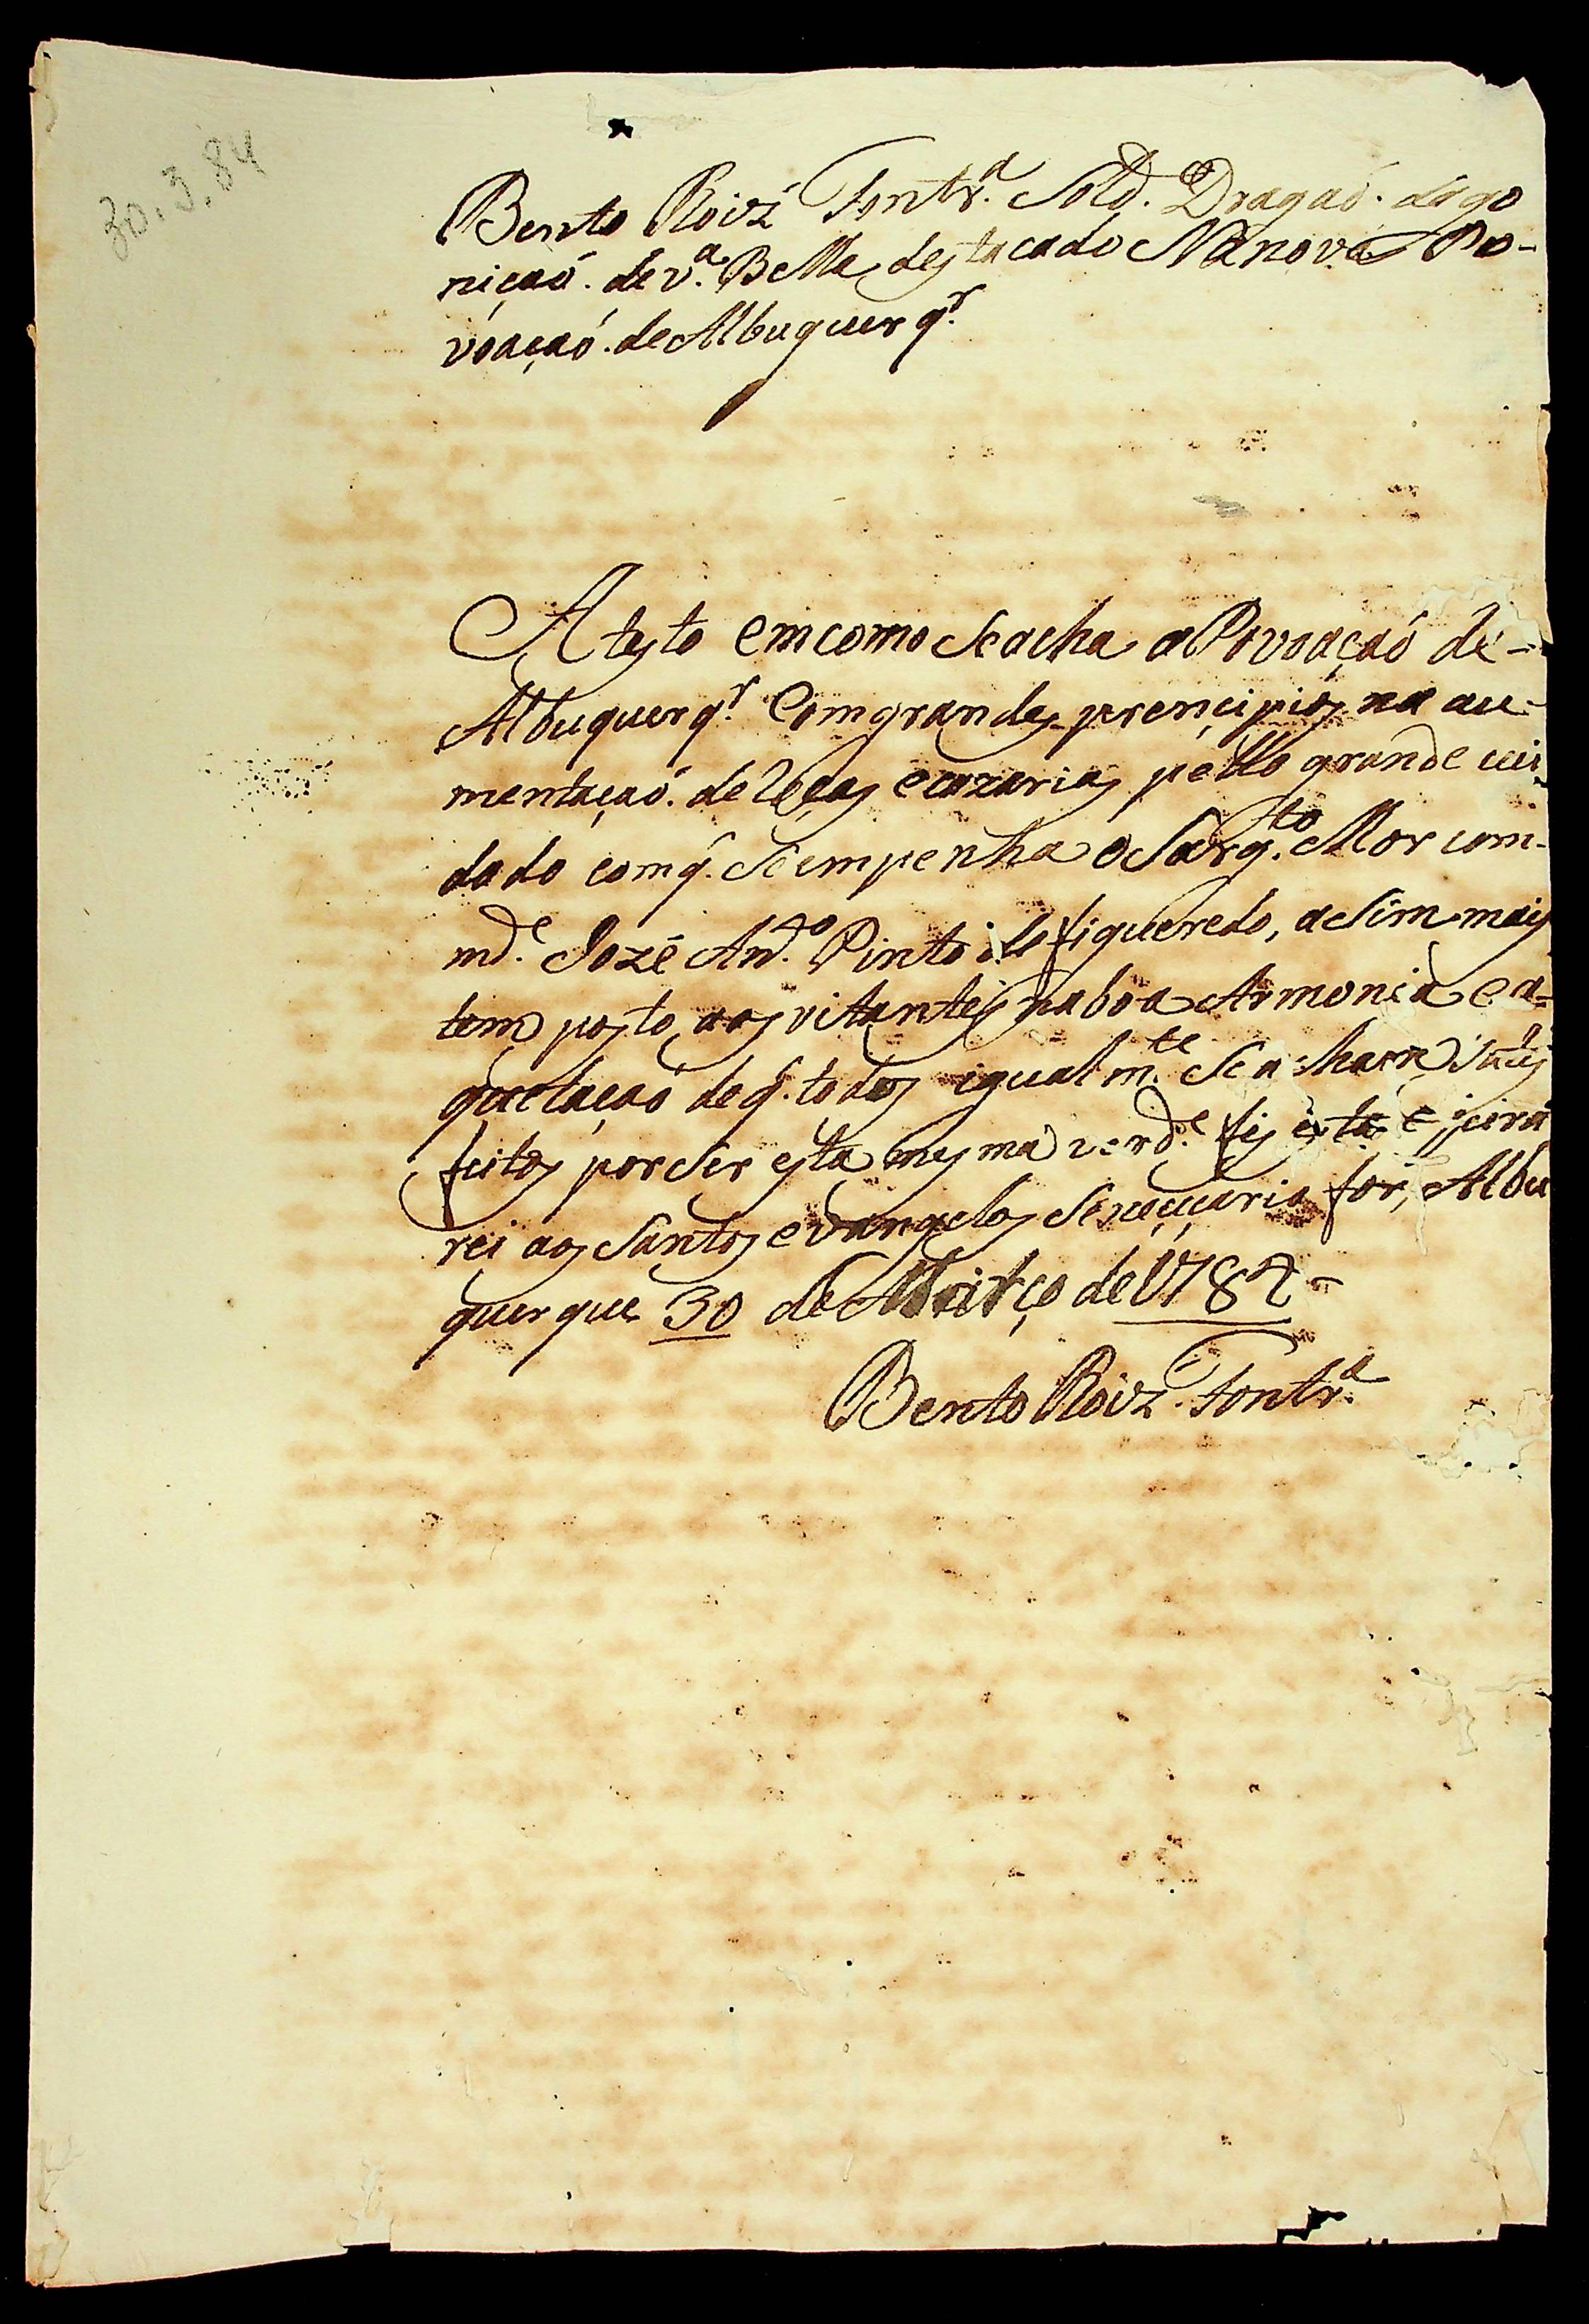 30.3.84
Bento Roiz Fontr.ª Sold. Dragaó. da go
niçaó. de v.ª Bella, destacado Na nova Po-
voaçaó. de Albuquerq.r
Atesto em como Se acha a Povoaçaó de-
Albuquerq.r Com grandes prençipios na au-
mentaçaó. de Roças e cazarias pello grande cui
dado com q. Se empenha o Sarg.to Mor com-
md.e Jozé An.to Pinto de figueredo, aSim mais
tem posto aos vitantes na boa Armonia e a-
quetaçaó de q. todos igualm.te Se acham satis
feitos por Ser esta mesma verd.e fis esta e jura
rei aos Santos evangelos Se neçeçario for, Albu
querque 30 de Março de 1784
Bento Roiz Fontr.ª